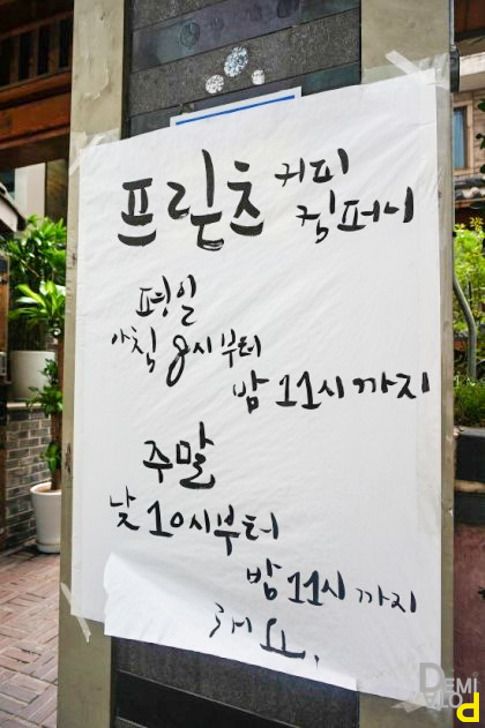 프릳츠 커피
컴퍼니
평일
아침 8시부터
밤 11시까지
주말
낮 10시부터
밤 11시까지
해요.
DEMI